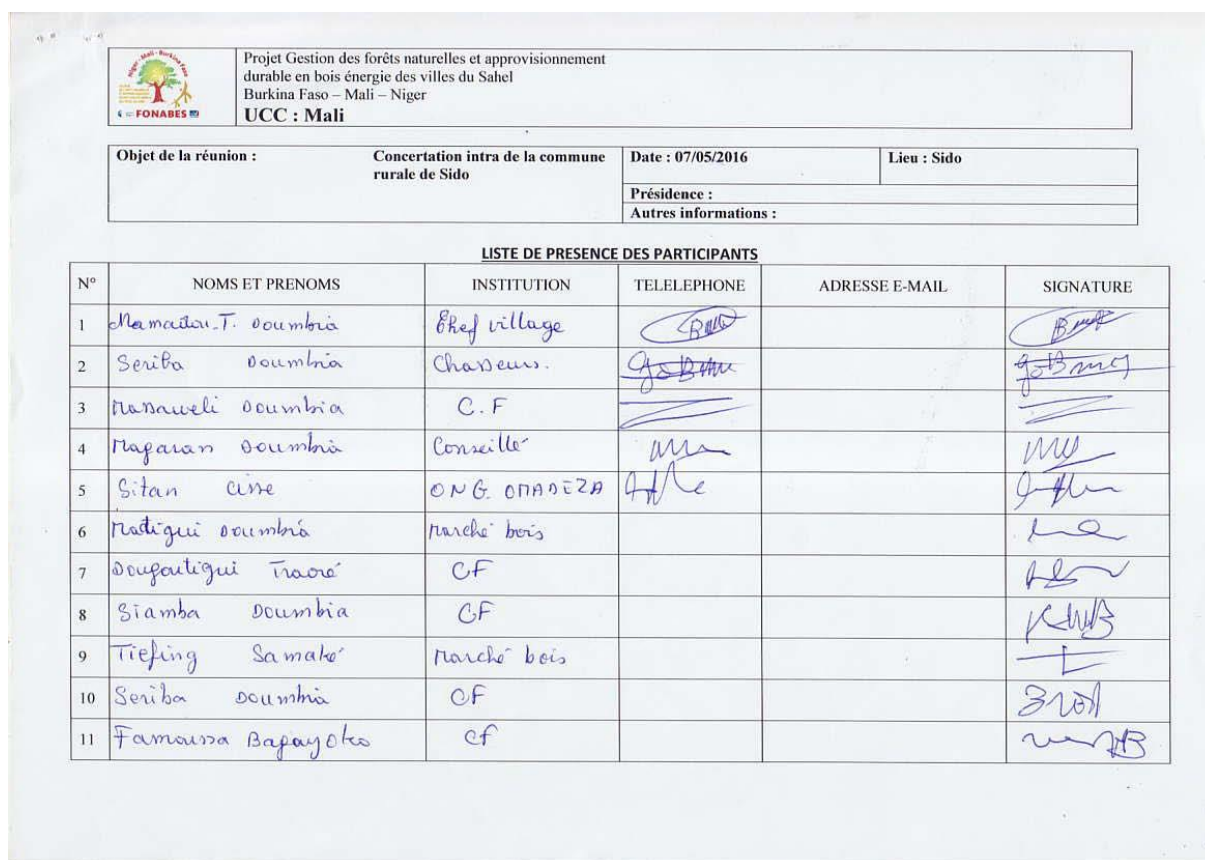 Niger - Mali - Burkina Faso
FONABES
Projet Gestion des forêts naturelles et approvisionnement
durable en bois énergie des villes du Sahel
Burkina Faso – Mali – Niger
UCC : Mali
Objet de la réunion : Concertation intra de la commune
rurale de Sido
Date : 07/05/2016 Lieu : Sido
Présidence :
Autres informations :
LISTE DE PRESENCE DES PARTICIPANTS
N° NOMS ET PRENOMS INSTITUTION TELELEPHONE ADRESSE E-MAIL SIGNATURE
1 T. Doumbia Chef village
2 Seriba Doumbia Chasseurs.
3 Doumbia C.F
4 Magaran Doumbia Conseillé
5 Sitan Cisse ONG. OMADEZA
6 Matigui Doumbia Marché bois
7 Dougoutigui Traoré CF
8 Siamba Doumbia CF
9 Tiefing Samaké Marché bois
10 Seriba Doumbia CF
11 Famoussa Bagayoko CF